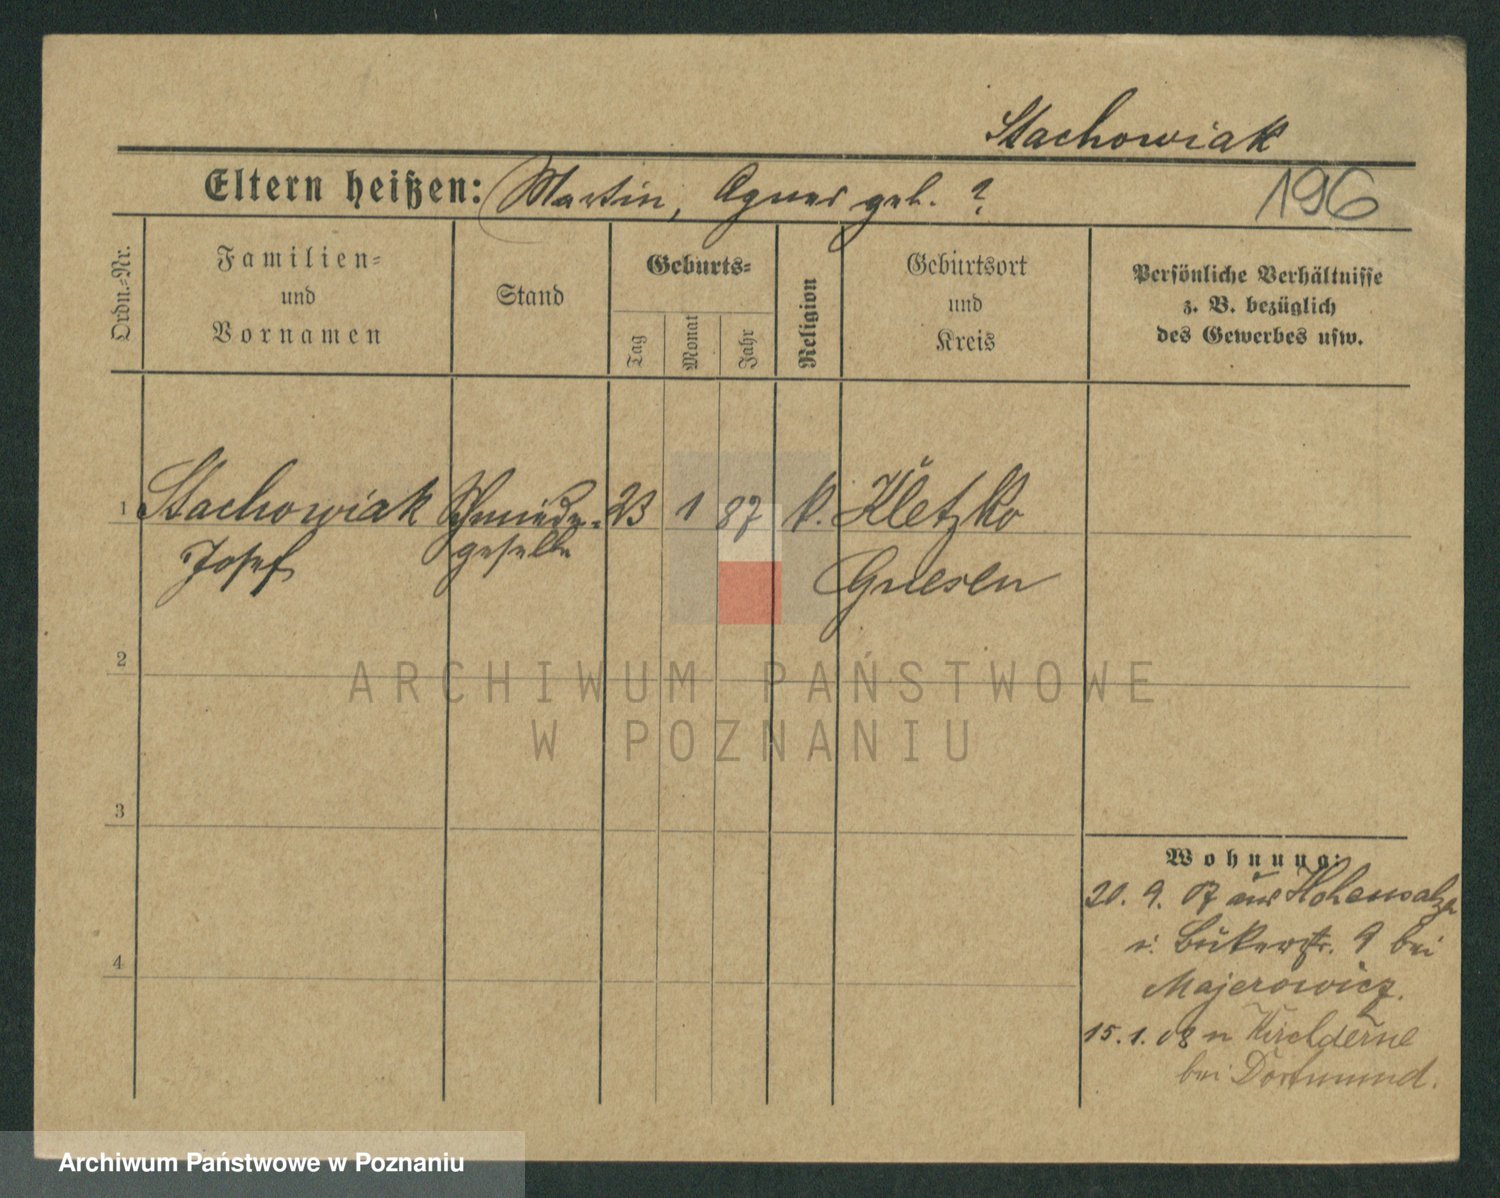 Stachowiak
Eltern heißen: Martin, Agnes geb. ?
196
Ordn.-Nr.
Familien-
und
Vornamen
Stand
Geburts-
Tag
Monat
Jahr
Religion
Geburtsort
und
Kreis
Persönliche Verhältnisse
z. B. bezüglich
des Gewerbes usw.
1 Stachowiak Schmiede- 23 1 87 k. Kletzko
Josef geselle Gnesen
2
3
4
Wohnung:
20. 9. 07 aus Hohensalza
i. Bäkerstr. 9 bei
Majerowicz.
15. 1. 08 n Kirchderne
bei Dortmund.
ARCHIWUM PAŃSTWOWE
W POZNANIU
Archiwum Państwowe w Poznaniu